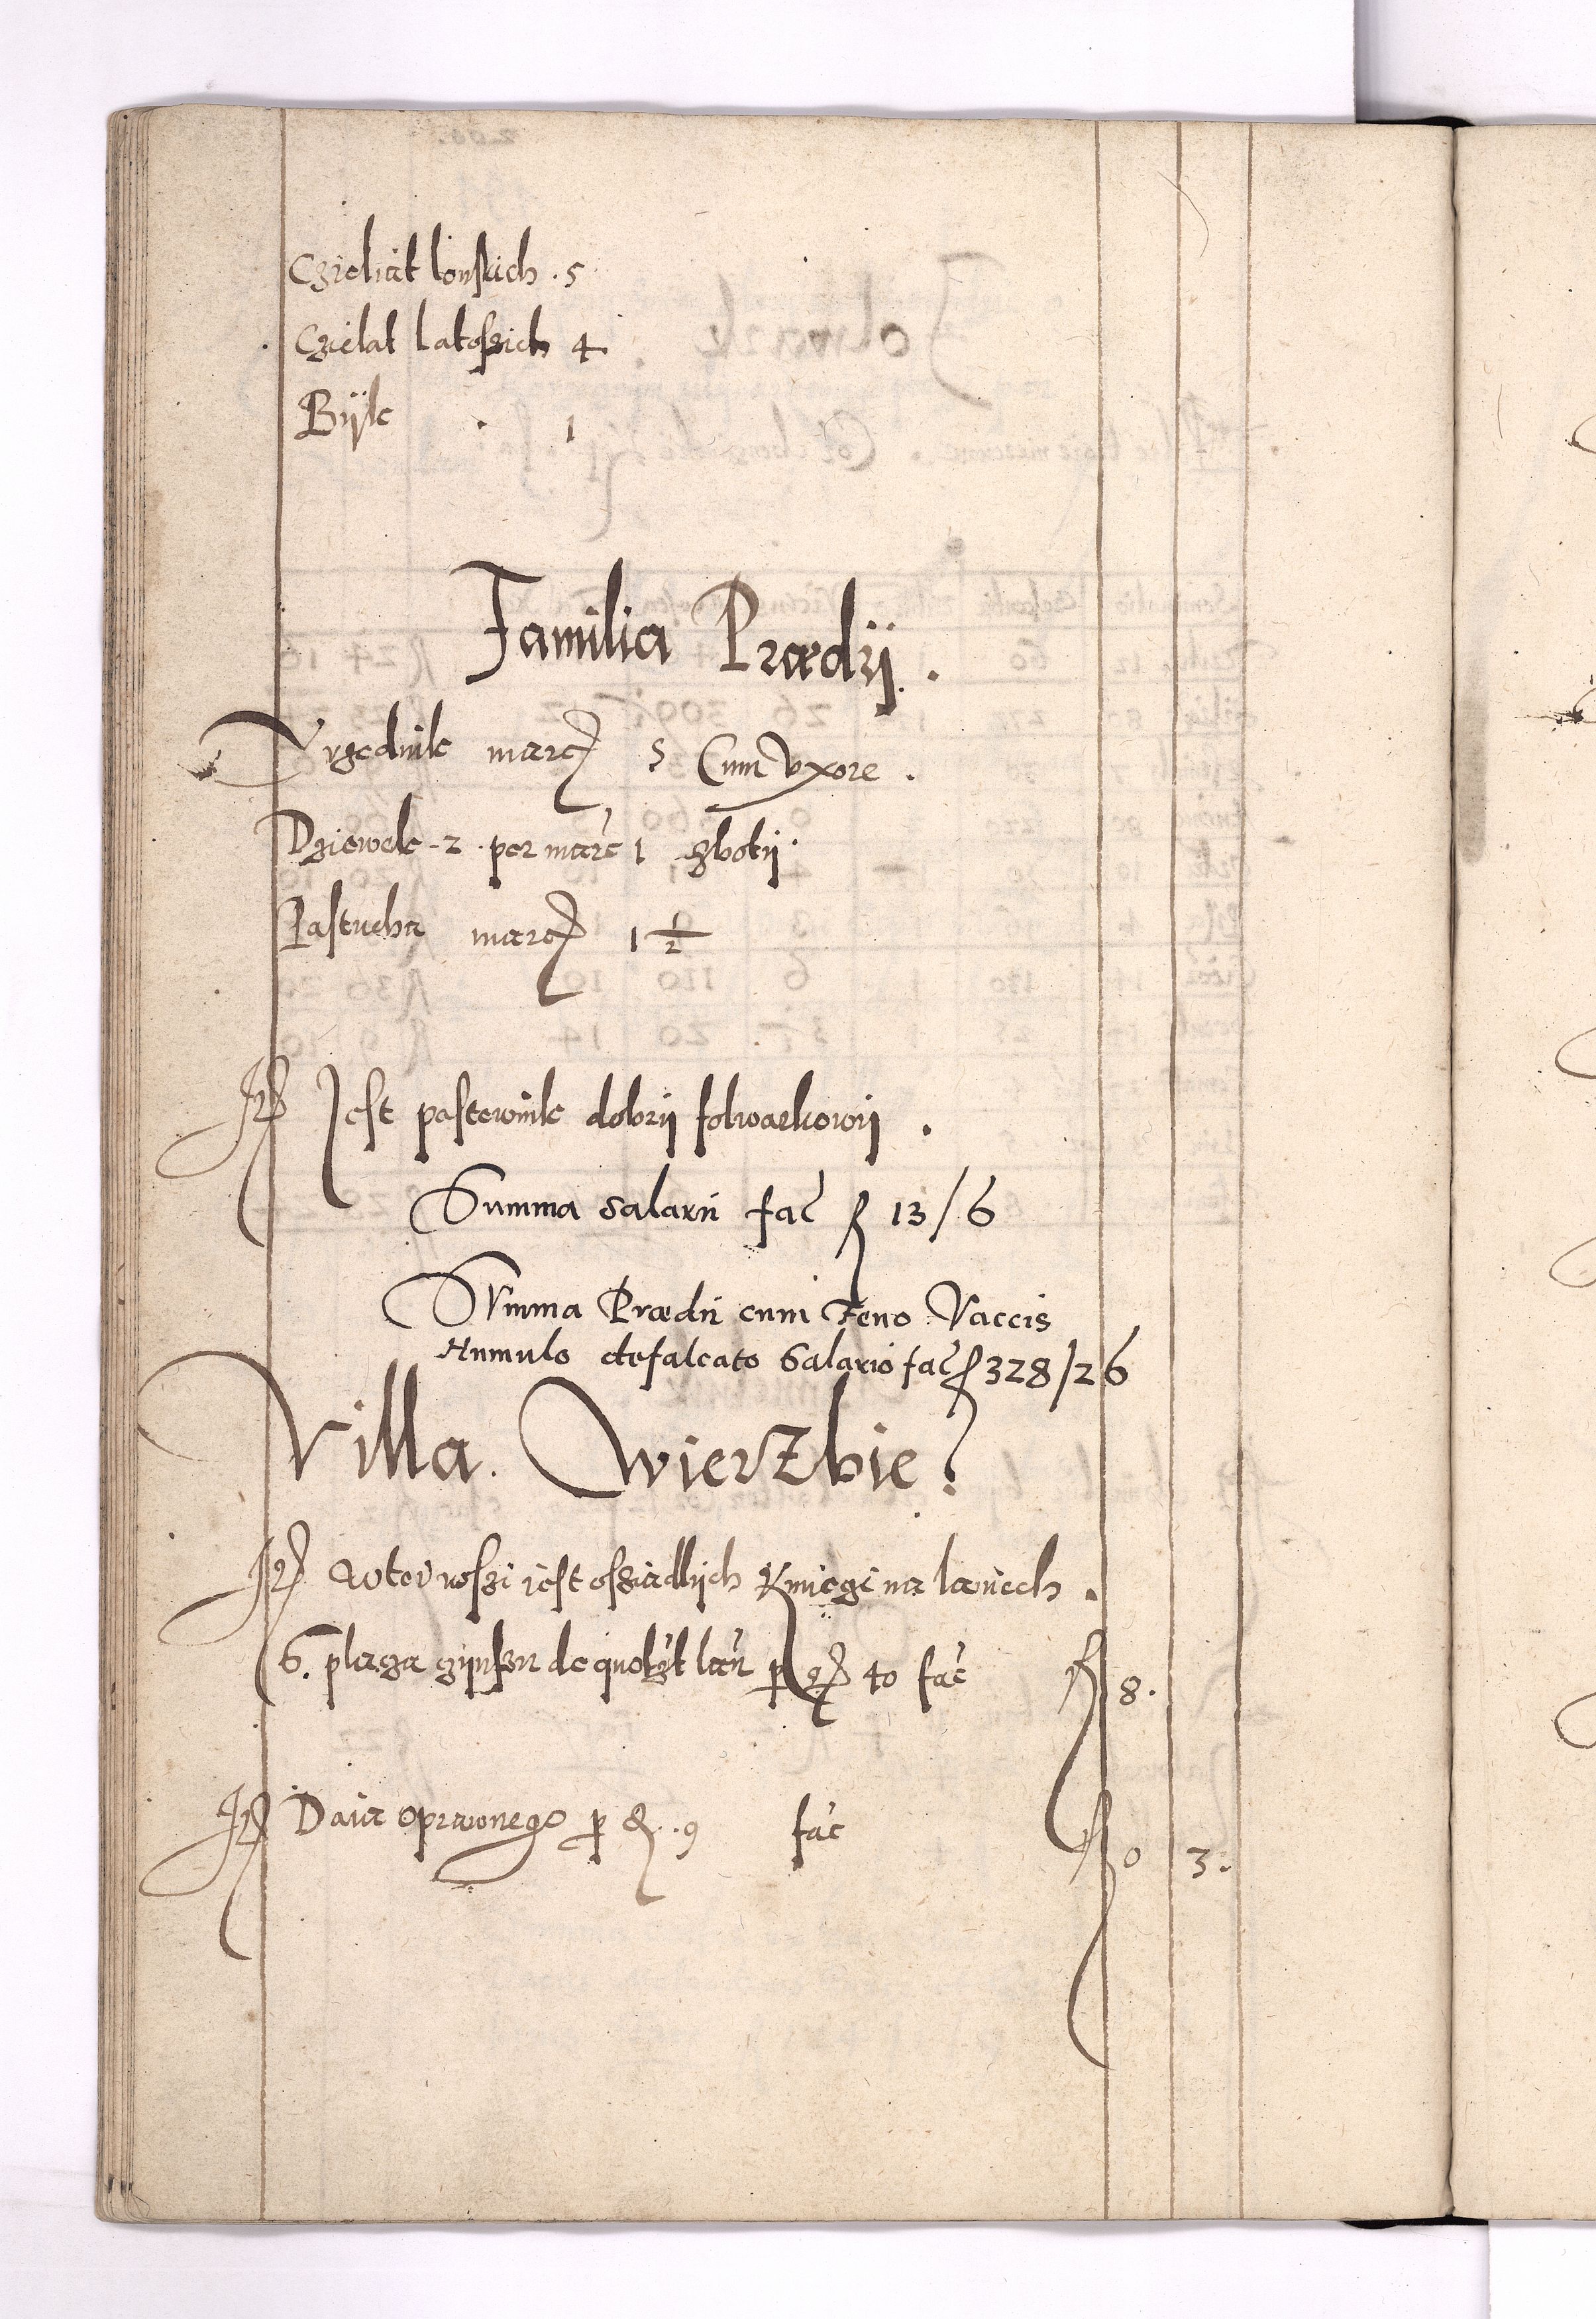 Czieliat lonskich . 5
Czielat latoszich 4
Byk . 1
Familia Prædij .
Vrzednik marc 5 Cum vxore .
Dziewek . 2 . per marc 1 zlotij
Pastucha marc 1 1/2
It Jest pastewnik dobrij folwarkowij .
Summa salarii fac fl 13/6
Summa Prædii cum Feno Vaccis
Humulo defalcato Salario fac fl 328/26
Villa . Wierzbie
It wteÿ wszi iest osziadlijch Kmiezi na laniech .
6. placza czijnszu de quolȝt lan p gr 40 fac fl 8 .
It Daia oprawnego p d . 9 fac fl 0 3 .